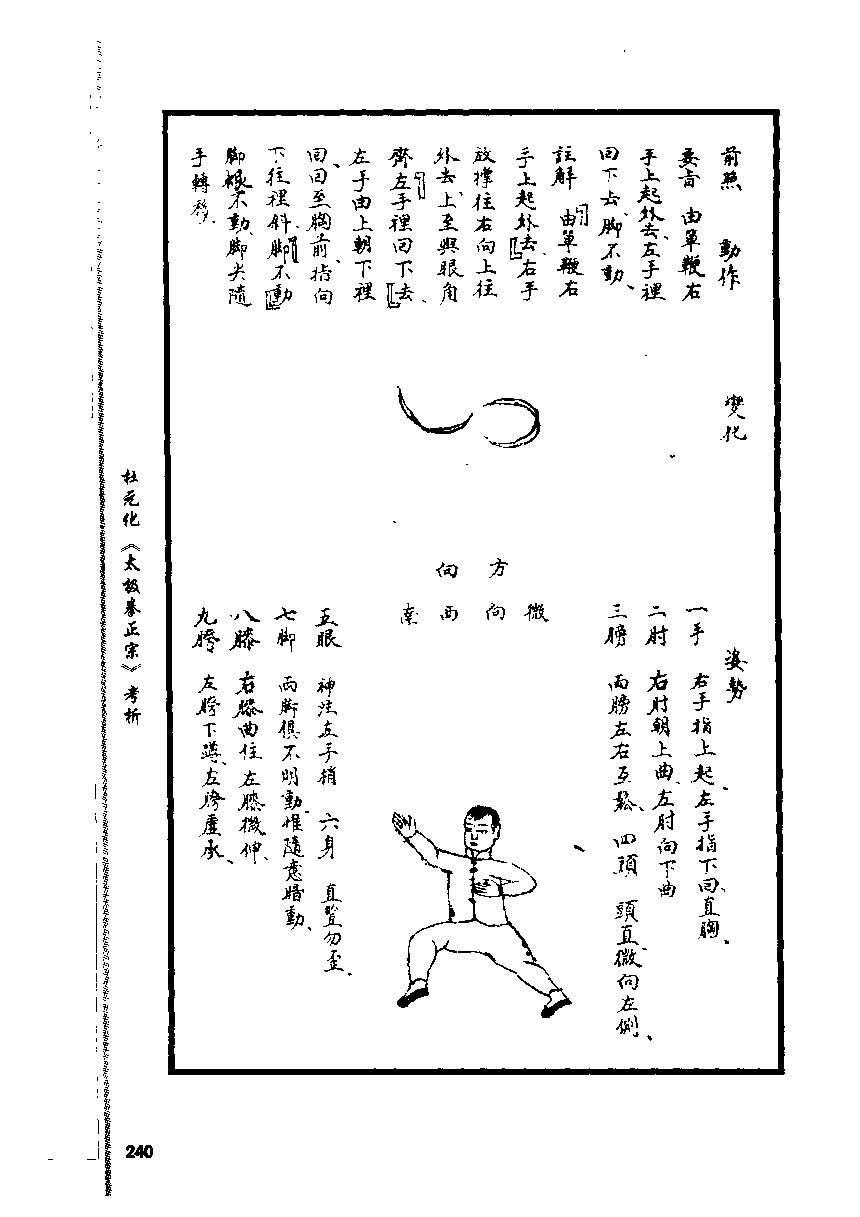 前照 動作
要言 由單鞭右
手上起外去、左手裡
回下去、脚不動、
註解 由單鞭右
手上起外去右手
放撑往右向上往
外去、上至與眼角
齊左手裡回下去、
左手由上朝下裡
回、回至胸前、指向
下往裡斜、脚不動
脚根不動、脚尖隨
手轉移、
變化
方向
微向西南
姿勢
一手 右手指上起、左手指下回、直胸、
二肘 右肘朝上曲、左肘向下曲
三膀 兩膀左右互鬆、四頭 頭直、微向左側、
五眼 神注左手梢 六身 直豎勿歪、
七脚 兩脚俱不明動、惟隨意暗動、
八膝 右膝曲住左膝微伸、
九胯 左胯下蹲、左胯虛承、
杜元化《太极拳正宗》考析
240